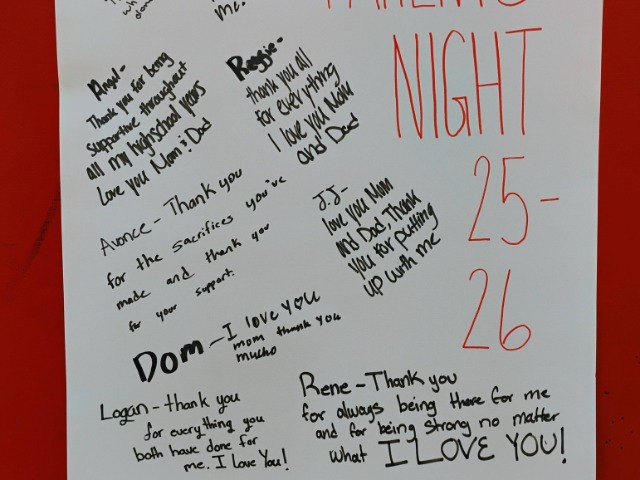 me.
PARENTS
NIGHT
25-
26
Angel-
Thank you for being
supportive throughout
all my highschool years
Love you Mom & Dad
Reggie-
thank you all
for everything
I love you Mom
and Dad
Avonce - Thank you
for the sacrifices you've
made and thank you
for your support.
J.J-
love you Mom
and Dad, Thank
you for putting
up with me
Dom - I love you
mom thank you
mucho
Logan - thank you
for everything you
both have done for
me. I love You!
Rene - Thank you
for always being there for me
and for being strong no matter
what I LOVE YOU!